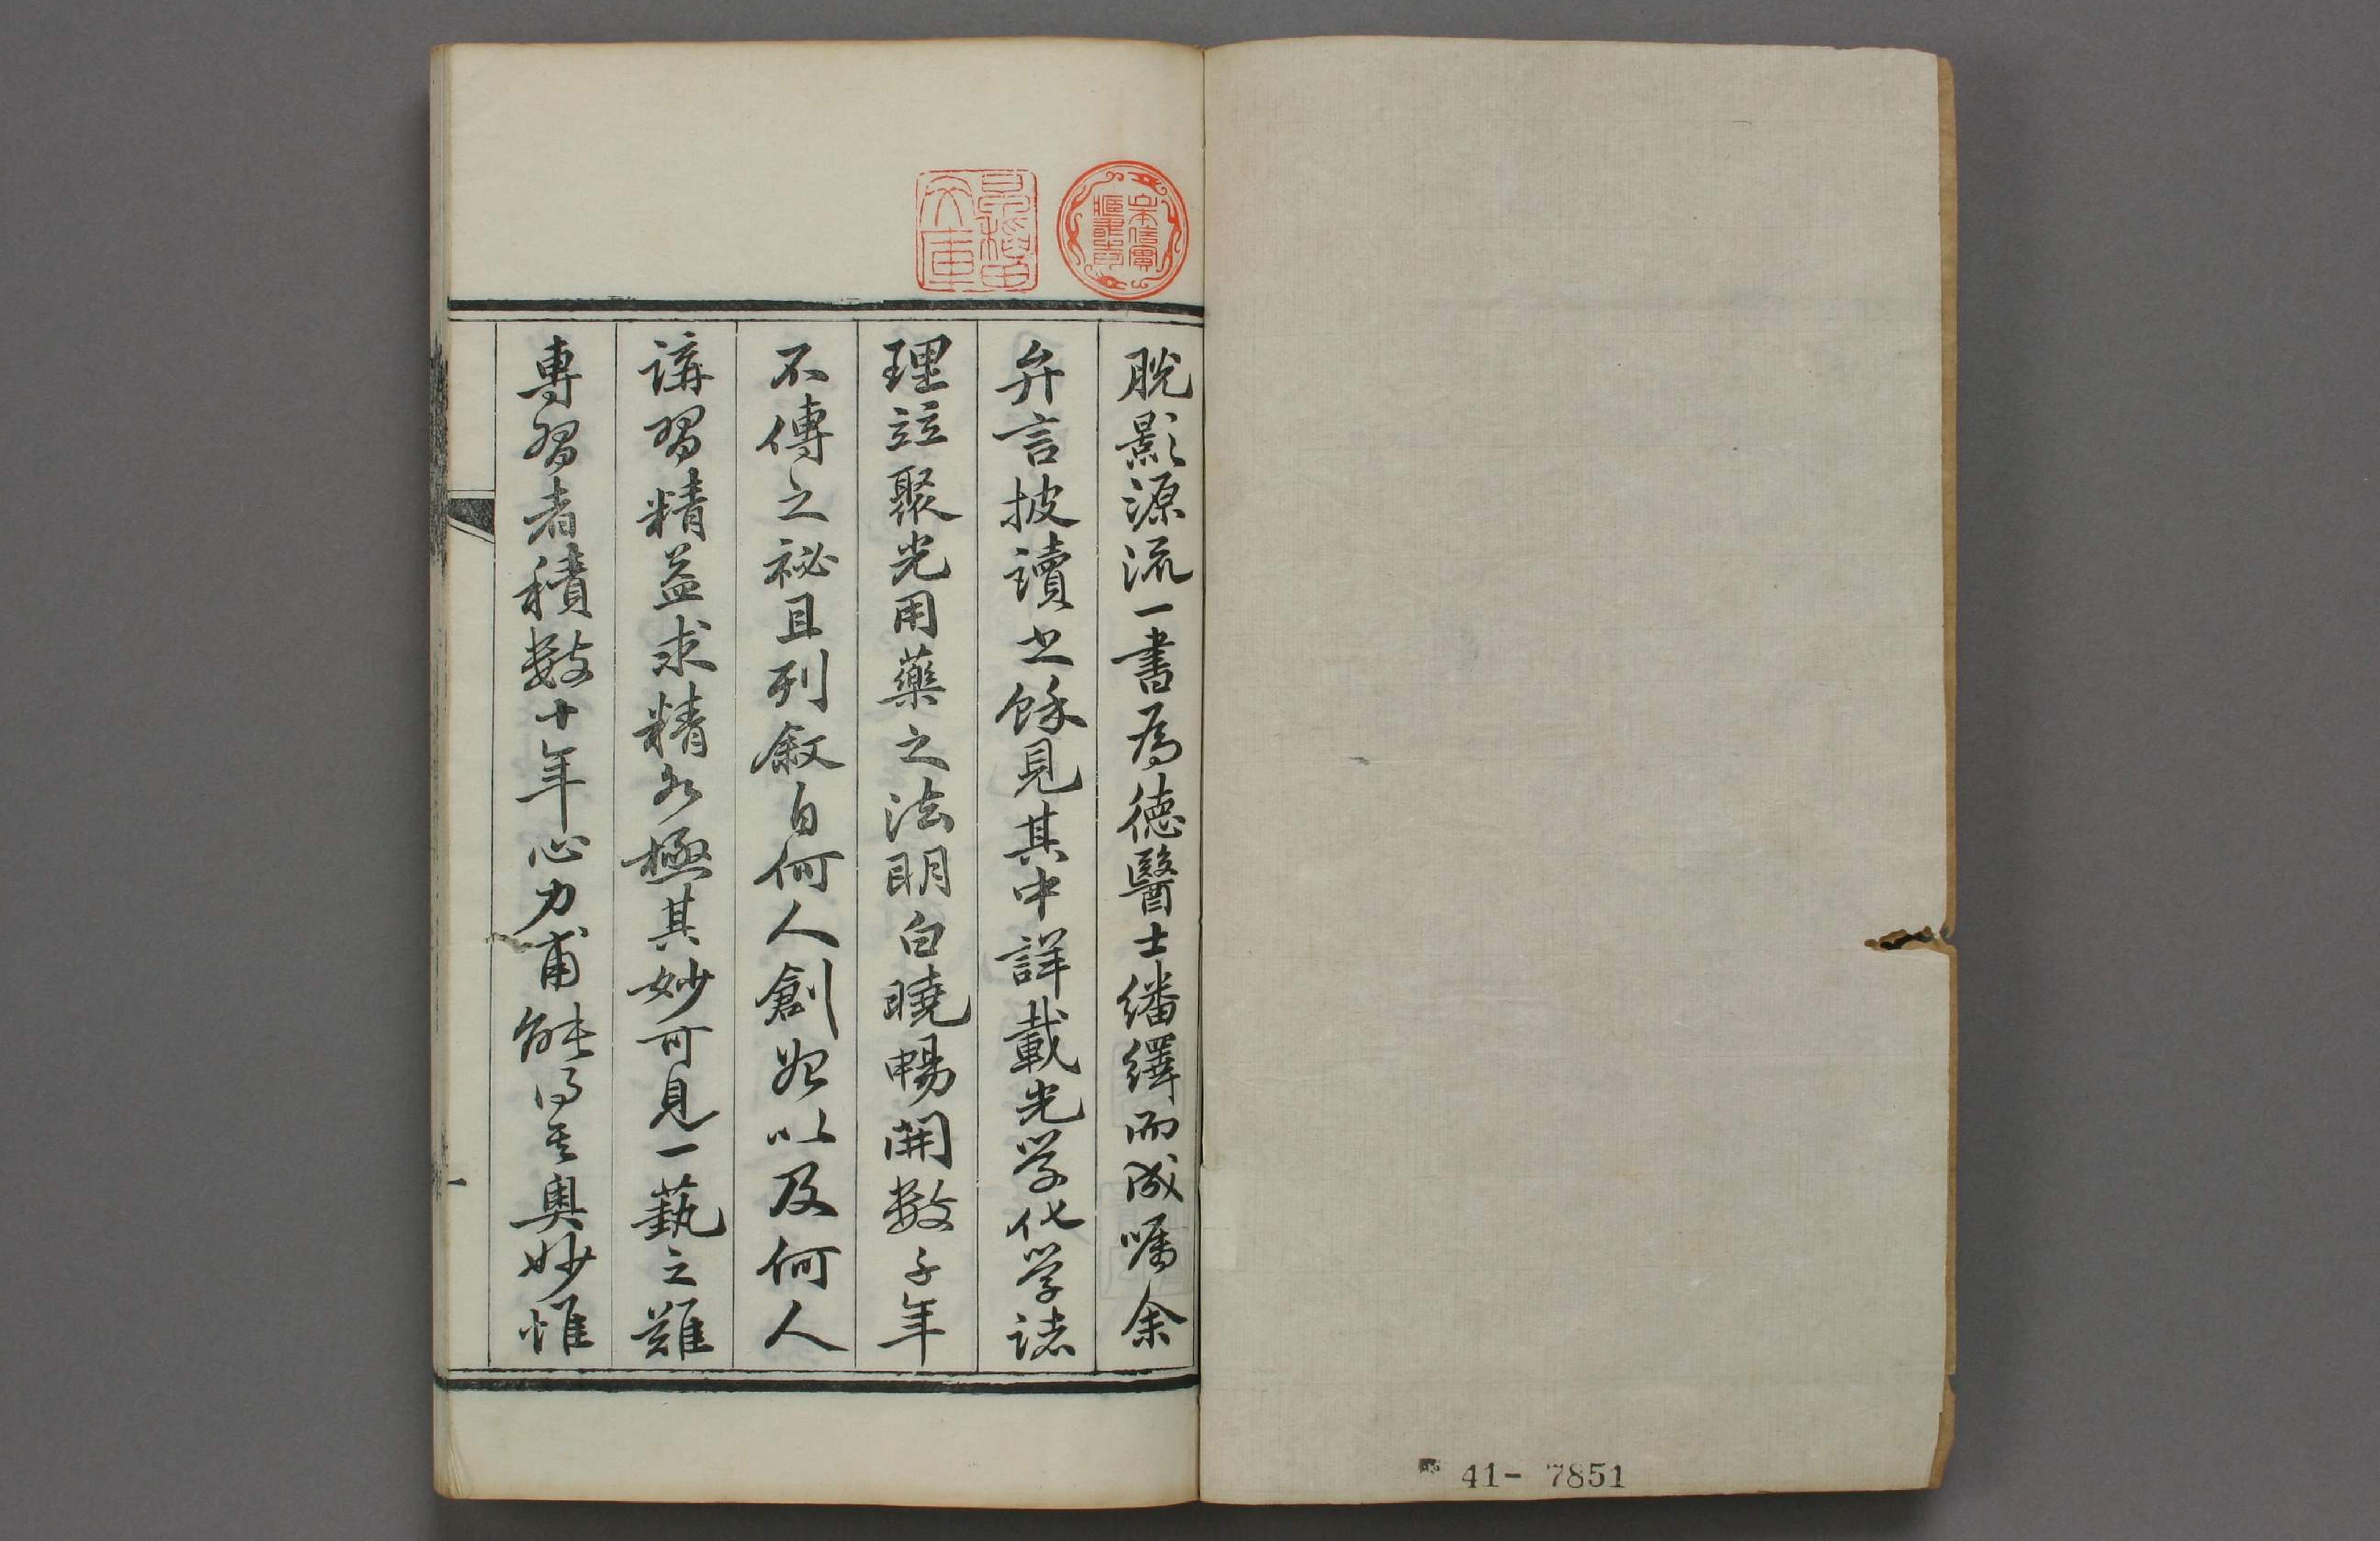 脫影源流一書為德醫士繙繹而成囑余
弁言披讀之餘見其中詳載光学化学諸
理竝聚光用藥之法明白曉暢開數千年
不傳之祕且列敘自何人創始以及何人
講習精益求精各極其妙可見一藝之難
專習者積數十年心力甫能得其奧妙惟
文庫
41- 7851